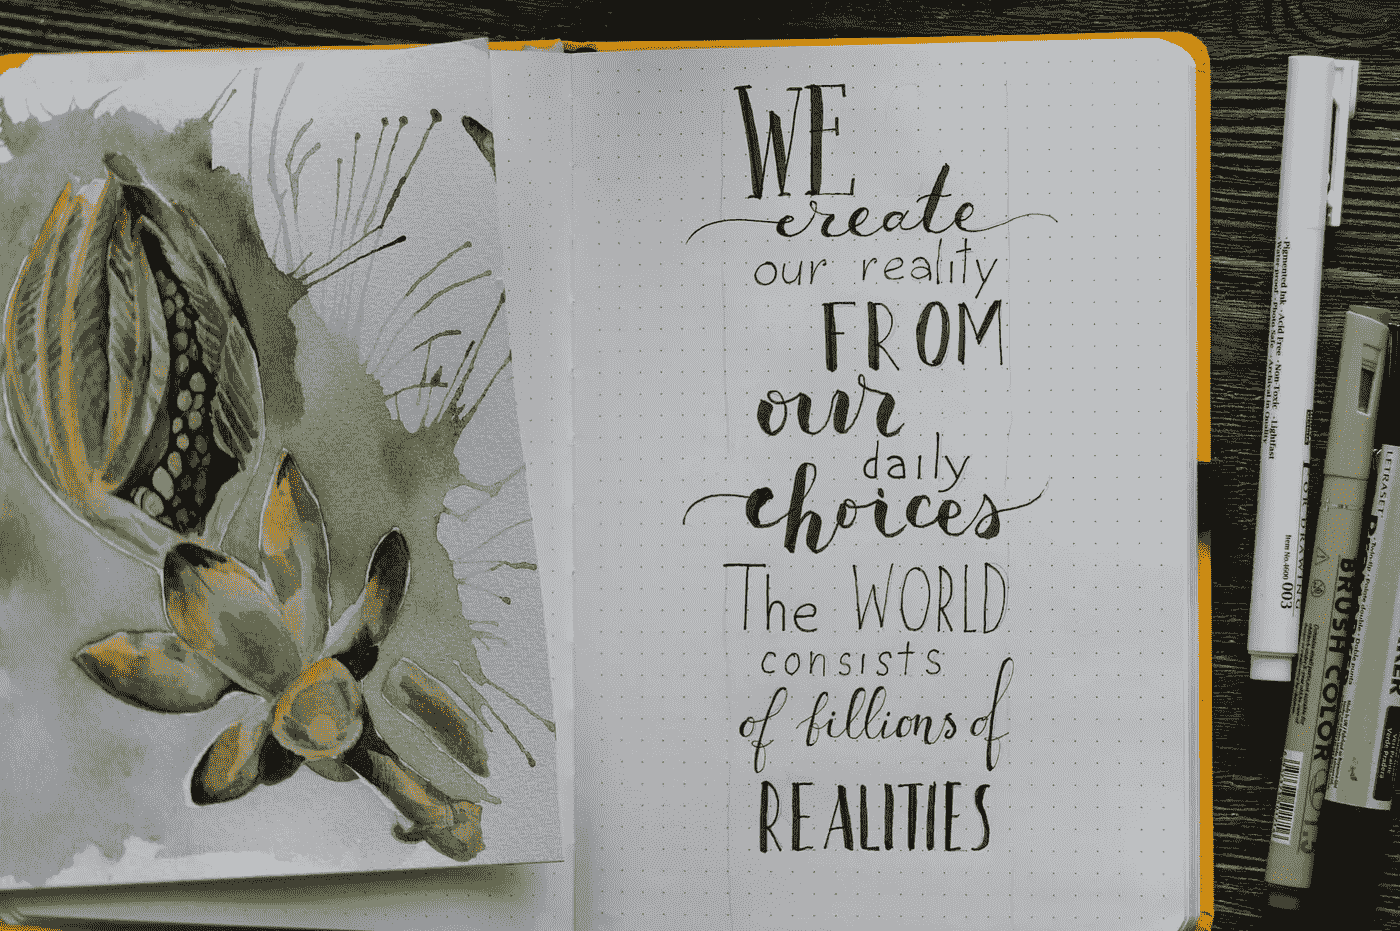 WE
create
our reality
FROM
our
daily
choices
The WORLD
consists
of billions of
REALITIES
Pigmented Ink · Acid Free · Non-Toxic · Lightfast
Water proof · Photo Safe · Archival in Quality
FOR DRAWING
Item No.4600 003
BRUSH COLOR
LETRASET